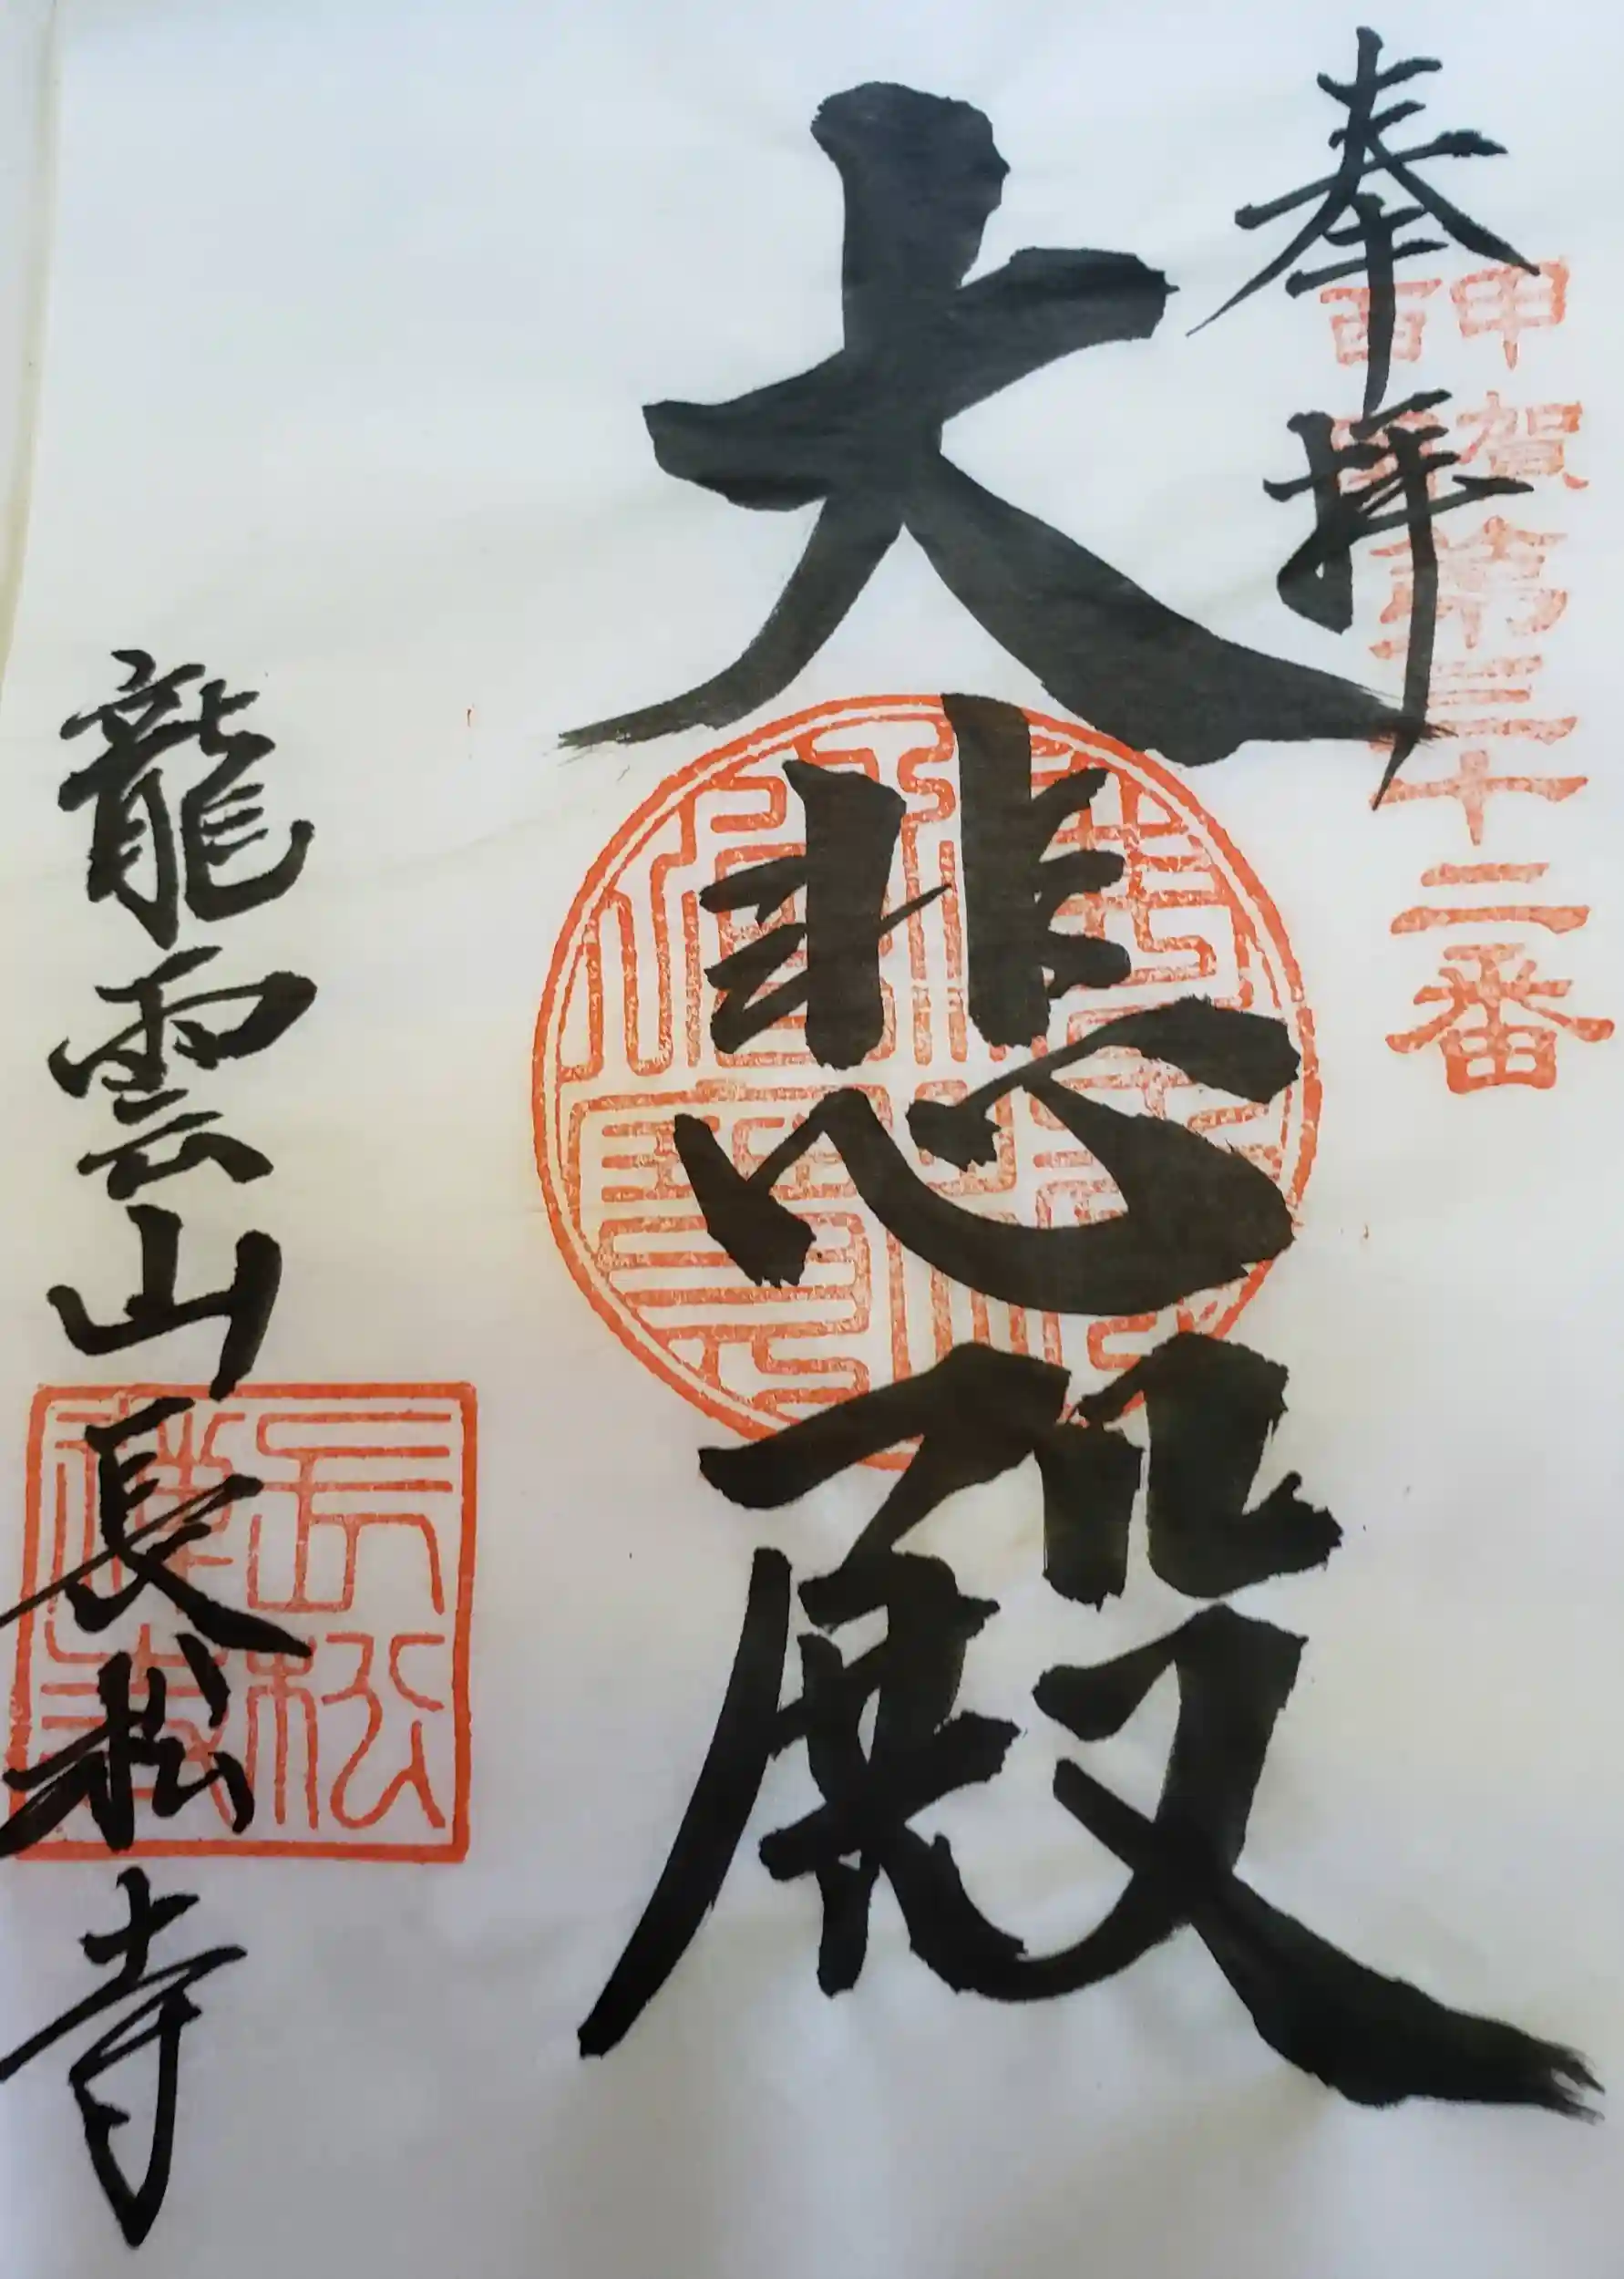 奉拝
甲賀西国
第三十二番
大悲殿
龍雲山長松寺
長松禅寺